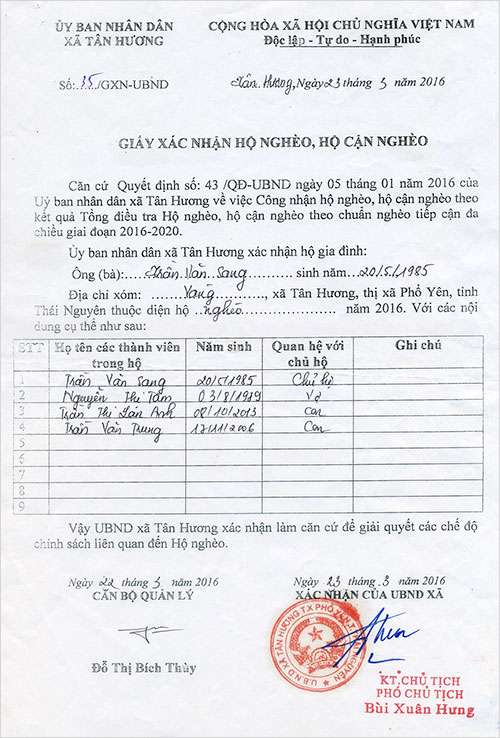 ỦY BAN NHÂN DÂN
XÃ TÂN HƯƠNG
CỘNG HÒA XÃ HỘI CHỦ NGHĨA VIỆT NAM
Độc lập - Tự do - Hạnh phúc
Số: 35/GXN-UBND
Tân Hương, Ngày 23 tháng 3 năm 2016
GIẤY XÁC NHẬN HỘ NGHÈO, HỘ CẬN NGHÈO
Căn cứ Quyết định số: 43 /QĐ-UBND ngày 05 tháng 01 năm 2016 của
Uỷ ban nhân dân xã Tân Hương về việc Công nhận hộ nghèo, hộ cận nghèo theo
kết quả Tổng điều tra Hộ nghèo, hộ cận nghèo theo chuẩn nghèo tiếp cận đa
chiều giai đoạn 2016-2020.
Ủy ban nhân dân xã Tân Hương xác nhận hộ gia đình:
Ông (bà):....Trần Văn Sang.......... sinh năm...20/5/1985
Địa chỉ xóm: .......Vang............, xã Tân Hương, thị xã Phổ Yên, tỉnh
Thái Nguyên thuộc diện hộ ..nghèo...................... năm 2016. Với các nội
dung cụ thể như sau:
STT Họ tên các thành viên trong hộ Năm sinh Quan hệ với chủ hộ Ghi chú
1 Trần Văn Sang 20/5/1985 Chủ hộ
2 Nguyễn Thị Tấm 03/8/1979 Vợ
3 Trần Thị Lan Anh 08/10/2013 Con
4 Trần Văn Trung 17/11/2006 Con
5
6
7
8
9
Vậy UBND xã Tân Hương xác nhận làm căn cứ để giải quyết các chế độ
chính sách liên quan đến Hộ nghèo.
Ngày 22 tháng 3 năm 2016
CÁN BỘ QUẢN LÝ
Đỗ Thị Bích Thùy
Ngày 23 tháng 3 năm 2016
XÁC NHẬN CỦA UBND XÃ
U.B.N.D XÃ TÂN HƯƠNG T.X PHỔ YÊN
KT.CHỦ TỊCH
PHÓ CHỦ TỊCH
Bùi Xuân Hưng